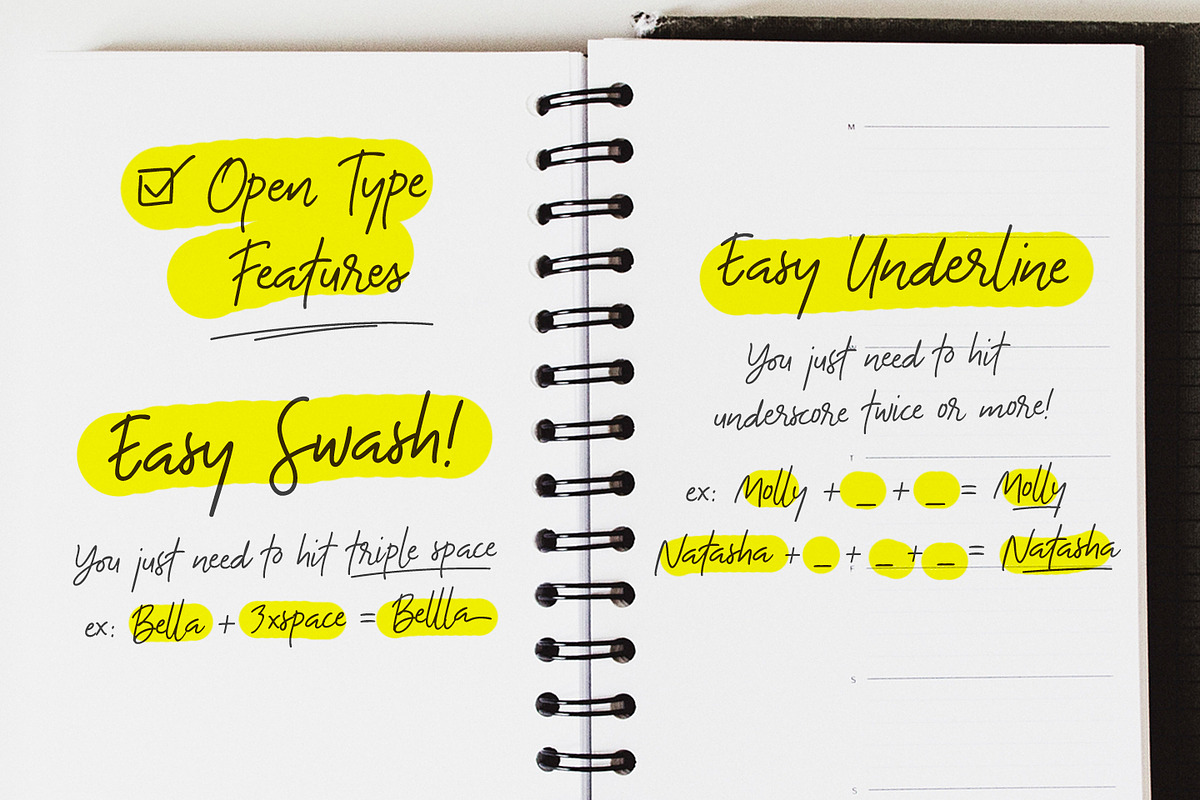 ☑ Open Type
Features
Easy Swash!
You just need to hit triple space
ex: Bella + 3xspace = Bellla
M
T
Easy Underline
W
You just need to hit
underscore twice or more!
T
ex: Molly + _ + _ = Molly
Natasha + _ + _ + _ = Natasha
F
S
S